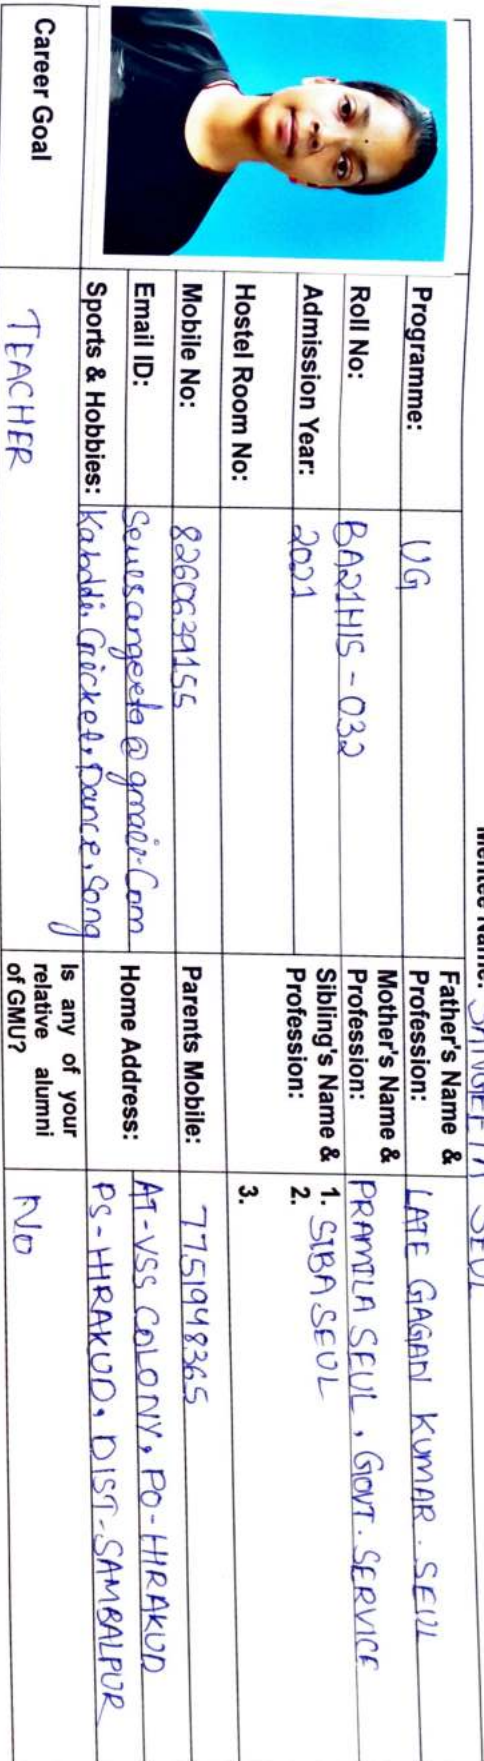 Mentee Name: SANGEETA SEUL
Programme: UG
Father's Name & Profession: LATE GAGAN KUMAR. SEUL
Roll No: BA21HIS-032
Mother's Name & Profession: PRAMILA SEUL, GOVT. SERVICE
Admission Year: 2021
Sibling's Name & Profession: 1. SIBA SEUL
2.
3.
Hostel Room No:
Mobile No: 8260639155
Parents Mobile: 7751948365
Email ID: Seulsangeeta@gmail.Com
Home Address: AT-VSS COLONY, PO-HIRAKUD
PS-HIRAKUD, DIST-SAMBALPUR
Sports & Hobbies: Kabaddi, Cricket, Dance, Song
Is any of your relative alumni of GMU? No
Career Goal TEACHER